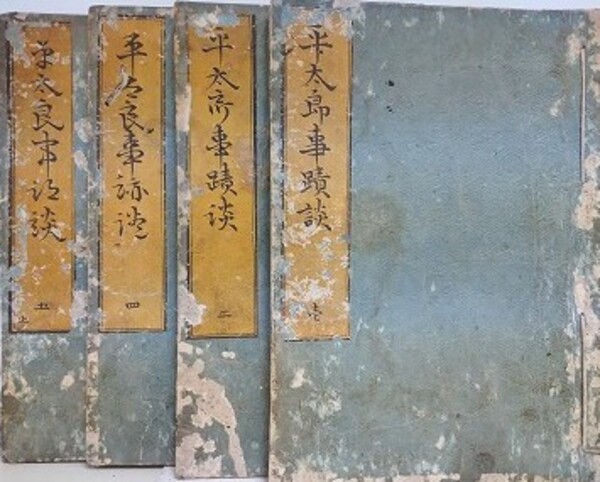 平太郎事蹟談
壱
平太郎事蹟談
二
平太良事跡談
四
平太良事跡談
五
上